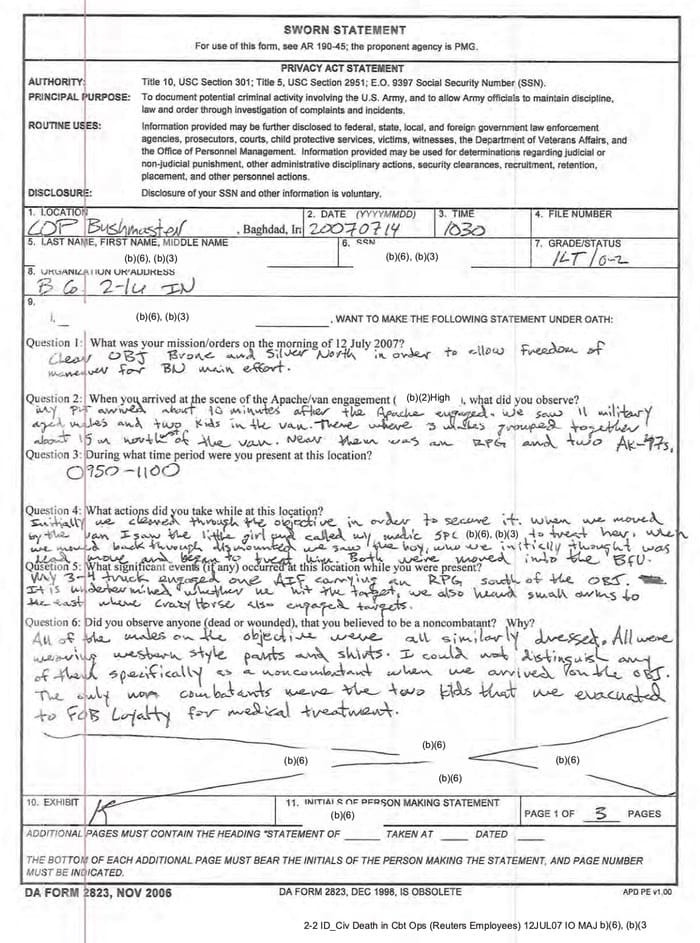 SWORN STATEMENT
For use of this form, see AR 190-45; the proponent agency is PMG.
PRIVACY ACT STATEMENT
AUTHORITY: Title 10, USC Section 301; Title 5, USC Section 2951; E.O. 9397 Social Security Number (SSN).
PRINCIPAL PURPOSE: To document potential criminal activity involving the U.S. Army, and to allow Army officials to maintain discipline,
law and order through investigation of complaints and incidents.
ROUTINE USES: Information provided may be further disclosed to federal, state, local, and foreign government law enforcement
agencies, prosecutors, courts, child protective services, victims, witnesses, the Department of Veterans Affairs, and
the Office of Personnel Management. Information provided may be used for determinations regarding judicial or
non-judicial punishment, other administrative disciplinary actions, security clearances, recruitment, retention,
placement, and other personnel actions.
DISCLOSURE: Disclosure of your SSN and other information is voluntary.
1. LOCATION 2. DATE (YYYYMMDD) 3. TIME 4. FILE NUMBER
COP Bushmaster , Baghdad, Ir 20070714 1030
5. LAST NAME, FIRST NAME, MIDDLE NAME 6. SSN 7. GRADE/STATUS
(b)(6), (b)(3) (b)(6), (b)(3) 1LT/O-2
8. ORGANIZATION OR ADDRESS
B Co 2-16 IN
9.
I, (b)(6), (b)(3) , WANT TO MAKE THE FOLLOWING STATEMENT UNDER OATH:
Question 1: What was your mission/orders on the morning of 12 July 2007?
Clear OBJ Brone and Silver North in order to allow freedom of
maneuver for BN main effort.
Question 2: When you arrived at the scene of the Apache/van engagement ( (b)(2)High ), what did you observe?
My PLT arrived about 10 minutes after the Apache engaged. We saw 11 military
aged males and two kids in the van. There where 3 males grouped together
about 15 m northwest of the van. Near them was an RPG and two AK-47s.
Question 3: During what time period were you present at this location?
0950-1100
Question 4: What actions did you take while at this location?
Initially we cleared through the objective in order to secure it. When we moved
by the van I saw the little girl and called w/ medic SPC (b)(6), (b)(3) to treat her, when
we moved back through dismounted we saw the boy, who we initially thought was
dead move and began to treat him. Both were moved into the BFV.
Question 5: What significant events (if any) occurred at this location while you were present?
My 3-4 truck engaged one AIF carrying an RPG south of the OBJ.
It is undetermined whether he hit the target, we also heard small arms to
the east where Crazy Horse also engaged targets.
Question 6: Did you observe anyone (dead or wounded), that you believed to be a noncombatant? Why?
All of the males on the objective were all similarly dressed. All were
wearing western style pants and shirts. I could not distinguish any
of them specifically as a noncombatant when we arrived on the OBJ.
The only non combatants were the two kids that we evacuated
to FOB Loyalty for medical treatment.
(b)(6)
(b)(6) (b)(6)
(b)(6)
10. EXHIBIT K 11. INITIALS OF PERSON MAKING STATEMENT
(b)(6) PAGE 1 OF 3 PAGES
ADDITIONAL PAGES MUST CONTAIN THE HEADING "STATEMENT OF ____ TAKEN AT ____ DATED ____
THE BOTTOM OF EACH ADDITIONAL PAGE MUST BEAR THE INITIALS OF THE PERSON MAKING THE STATEMENT, AND PAGE NUMBER
MUST BE INDICATED.
DA FORM 2823, NOV 2006 DA FORM 2823, DEC 1998, IS OBSOLETE APD PE v1.00
2-2 ID_Civ Death in Cbt Ops (Reuters Employees) 12JUL07 IO MAJ b)(6), (b)(3